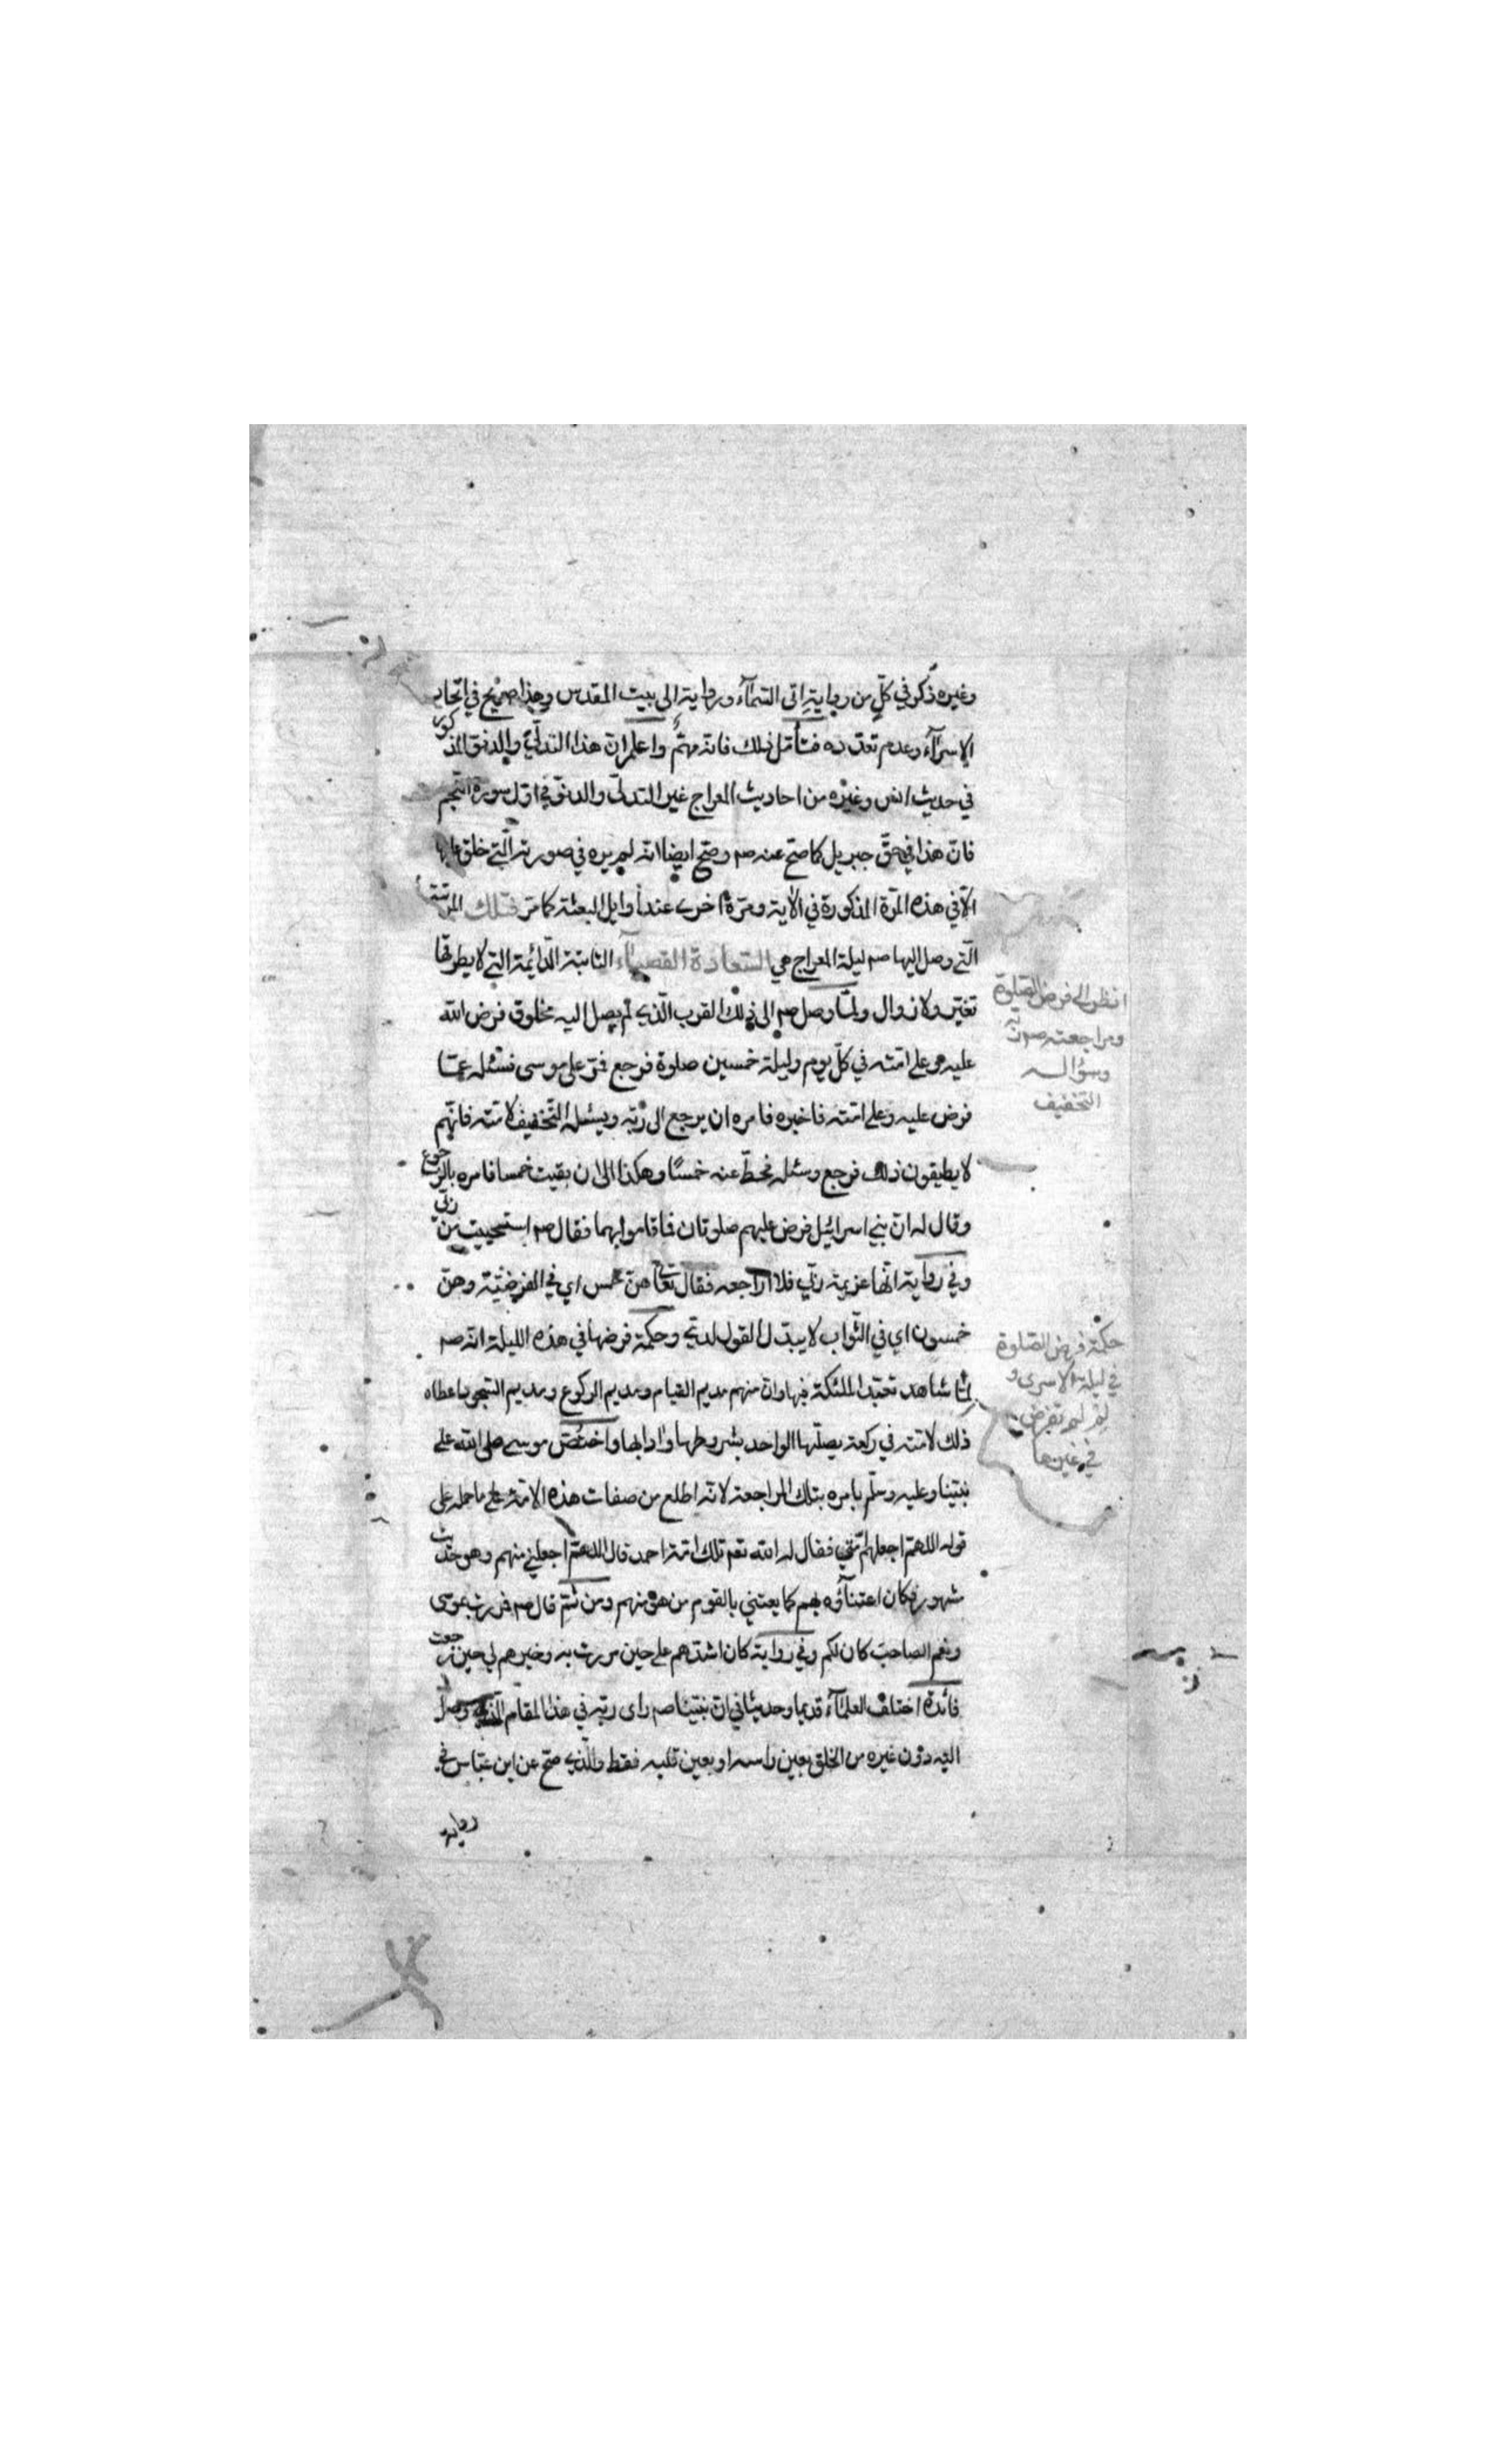 وغيره ذكر في كلّ من رواية الى السّمآء ورواية الى بيت المقدس وهذا صريح في اتّحاد
الاسرآء وعدم تعدّده فتأمّل ذلك فانه مهمّ واعلم انّ هذا التدلّي والدنوّ المذكور
في حديث انس وغيره من احاديث المعراج غير التدلّى والدنوّ في اوّل سورة النّجم
فانّ هذا في حقّ جبريل كما صحّ عنه صم وصحّ ايضا انّه لم يره في صورته الّتي خلق عليها
الّا في هذه المرّة المذكورة في الاية ومرّة اخرى عند اوايل البعثة كما مرّ فتلك المرتبة
الّتي وصل اليها صم ليلة المعراج هي السّعادة القصيآء الثابتة الدّائمة التي لا يطرقها
تغيّر ولا زوال ولمّا وصل صم الى ذلك القرب الّذي لم يصل اليه مخلوق فرض الله
عليه وعلى امّته في كلّ يوم وليلة خمسين صلوة فرجع فمرّ على موسى فسئله عمّا
فرض عليه وعلى امّته فاخبره فامره ان يرجع الى ربّه ويسئله التّخفيف لامّته فانّهم
لا يطيقون ذلك فرجع وسئله فحطّ عنه خمسًا وهكذا الى ان بقيت خمسا فامره بالرجوع
وقال له انّ بني اسرائيل فرض عليهم صلوتان فما قاموا بهما فقال صم استحييت من ربّي
وفي رواية انّها عزيمة ربّي فلا اراجعه فقال تعالى هنّ خمس اي في الفرضيّة وهنّ
خمسون اي في الثّواب لا يبدّل القول لديّ وحكمة فرضها في هذه الليلة انّه صم
لمّا شاهد تعبّد الملئكة فيها وانّ منهم مديم القيام ومديم الركوع ومديم السّجود اعطاه
ذلك لامّته في ركعة يصلّيها الواحد بشروطها وادابها واختصّ موسى صلى الله على
نبيّنا وعليه وسلّم بامره بتلك المراجعة لانّه اطلع من صفات هذه الامّة على ما حمله على
قوله اللهمّ اجعلهم امّتي فقال له الله تعم تلك امّة احمد قال اللهمّ اجعلني منهم وهو حديث
مشهور فكان اعتنآؤه بهم كما يعتني بالقوم من هو منهم ومن ثمّ قال صم فمررت بموسى
ونعم الصاحب كان لكم وفي رواية كان اشدّهم عليّ حين مررت به وخيرهم لي حين رجعت
فائدة اختلف العلمآء قديما وحديثا في انّ نبيّنا صم راى ربّه في هذا المقام الّذي وصل
اليه دون غيره من الخلق بعين راسه او بعين قلبه فقط والّذي صحّ عن ابن عبّاس في
رواية
انظر الى فرض الصّلوة
ومراجعته صم ربّه
وسؤاله
التّخفيف
حكمة فرض الصّلوة
في ليلة الاسرى و
لِمَ لم تفرض
في غيرها